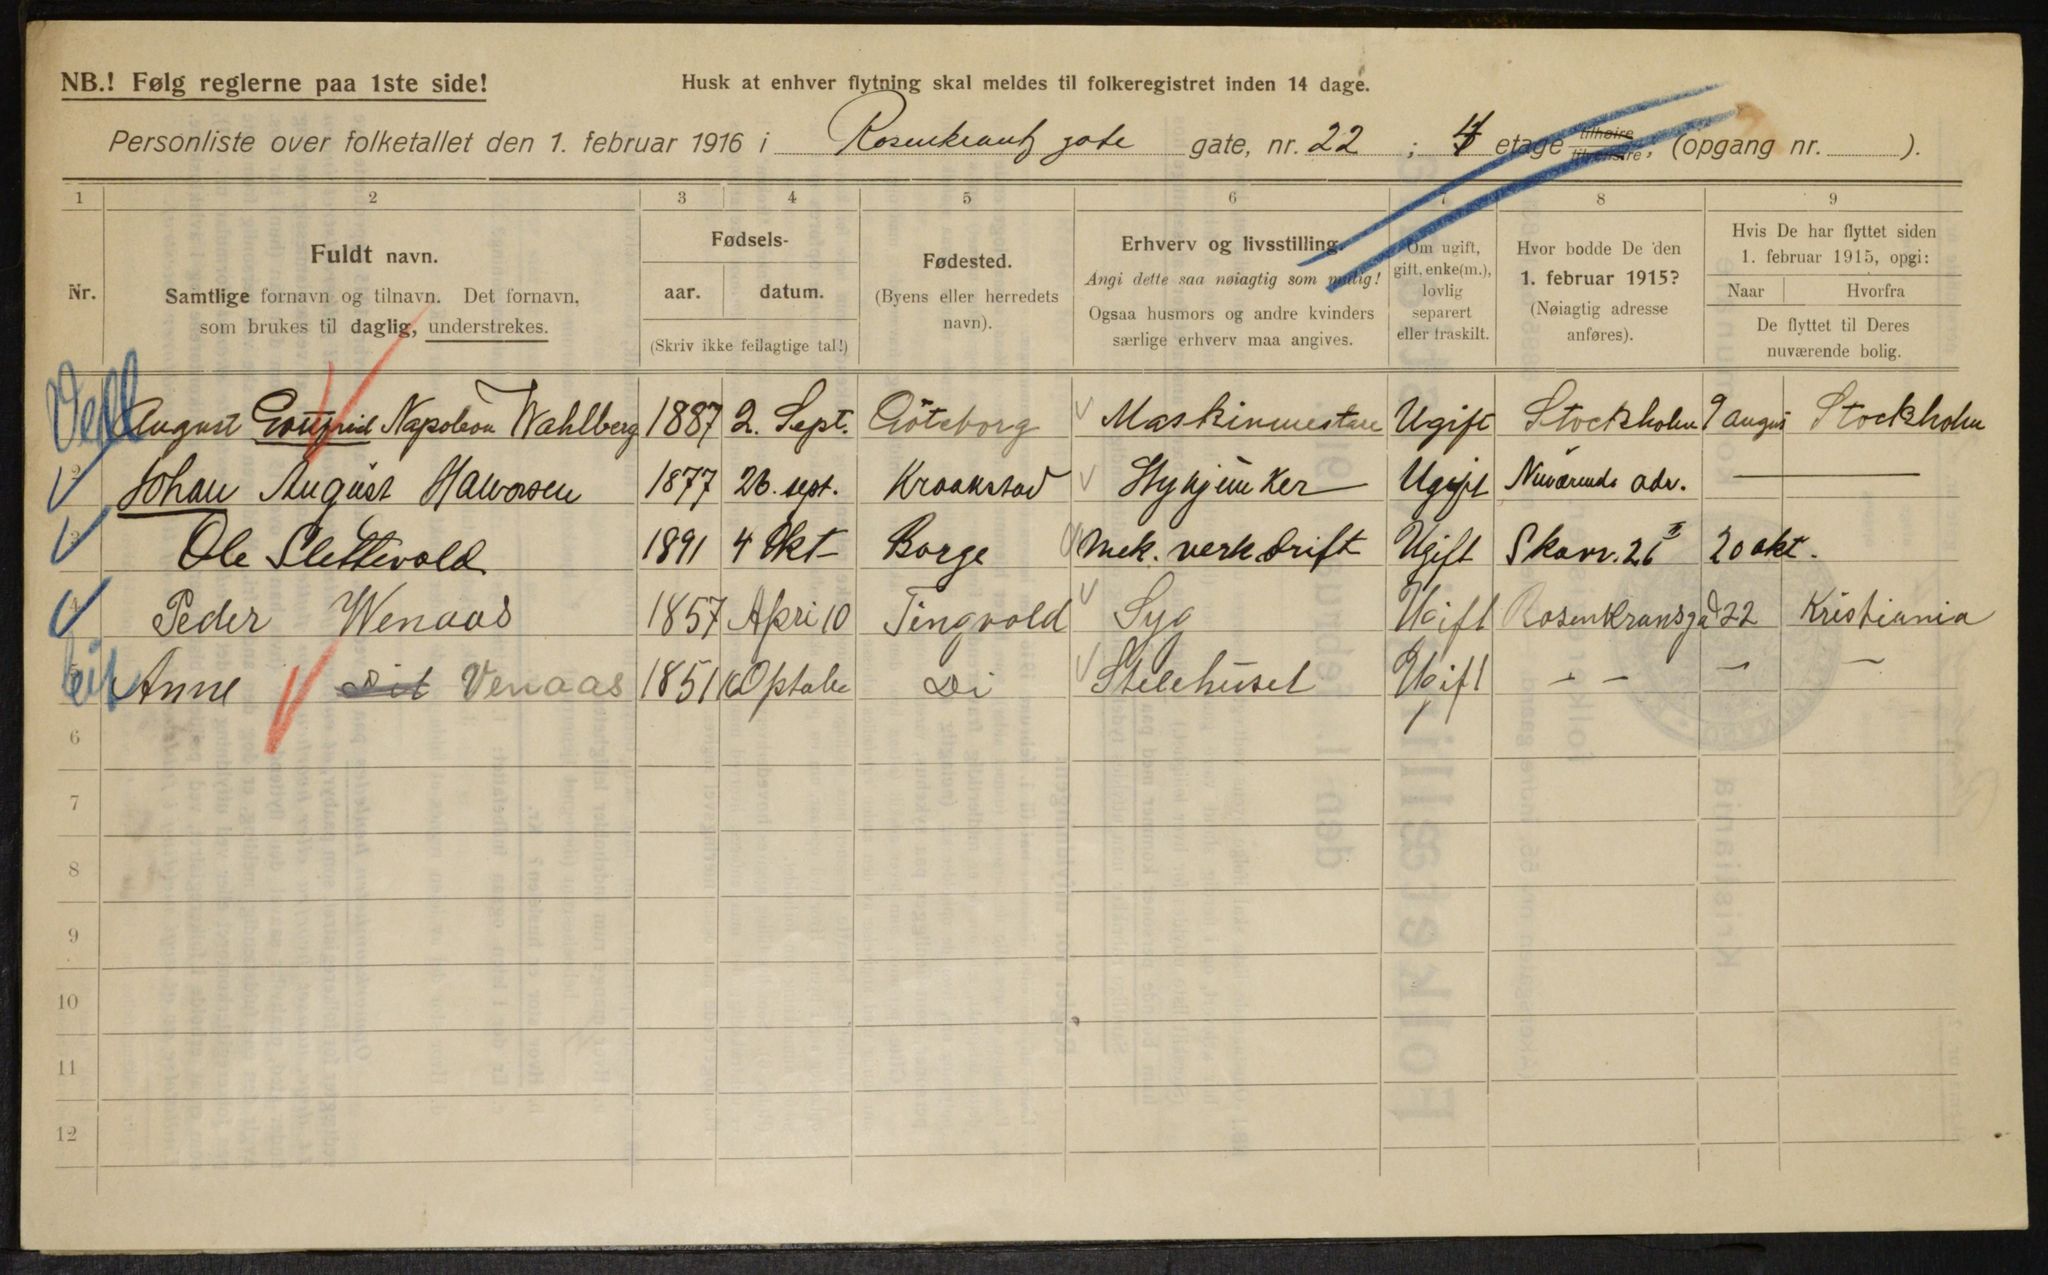 NB.! Følg reglerne paa 1ste side!
Husk at enhver flytning skal meldes til folkeregistret inden 14 dage.
Personliste over folketallet den 1. februar 1916 i Rosenkrantz gate gate, nr. 22 ; 4 etage tilhøire tilvenstre; (opgang nr. ).
1 2 3 4 5 6 7 8 9
Nr.
Fuldt navn.
Samtlige fornavn og tilnavn. Det fornavn,
som brukes til daglig, understrekes.
Fødsels-
aar. datum.
(Skriv ikke feilagtige tal!)
Fødested.
(Byens eller herredets
navn).
Erhverv og livsstilling.
Angi dette saa nøiagtig som mulig!
Ogsaa husmors og andre kvinders
særlige erhverv maa angives.
Om ugift,
gift, enke(m.),
lovlig
separert
eller fraskilt.
Hvor bodde De den
1. februar 1915?
(Nøiagtig adresse
anføres).
Hvis De har flyttet siden
1. februar 1915, opgi:
Naar Hvorfra
De flyttet til Deres
nuværende bolig.
August Gottfrid Napoleon Wahlberg 1887 2. Sept. Göteborg Maskinmestare Ugift Stockholm 9 augus Stockholm
2 Johan August Halvorsen 1877 26. sept. Kraakstad Ugift Nuværende adr. —
3 Ole Slettevold 1891 4 Okt Borge Mek. verk.drift Ugift Skovv. 26 II 20 okt.
4 Peder Wenaas 1857 Apri 10 Tingvold Syg Ugift Rosenkransgad 22 Kristiania
5 Anne Dit Venaas 1851 Di Stelehuset Ugift – – – –
6
7
8
9
10
11
12